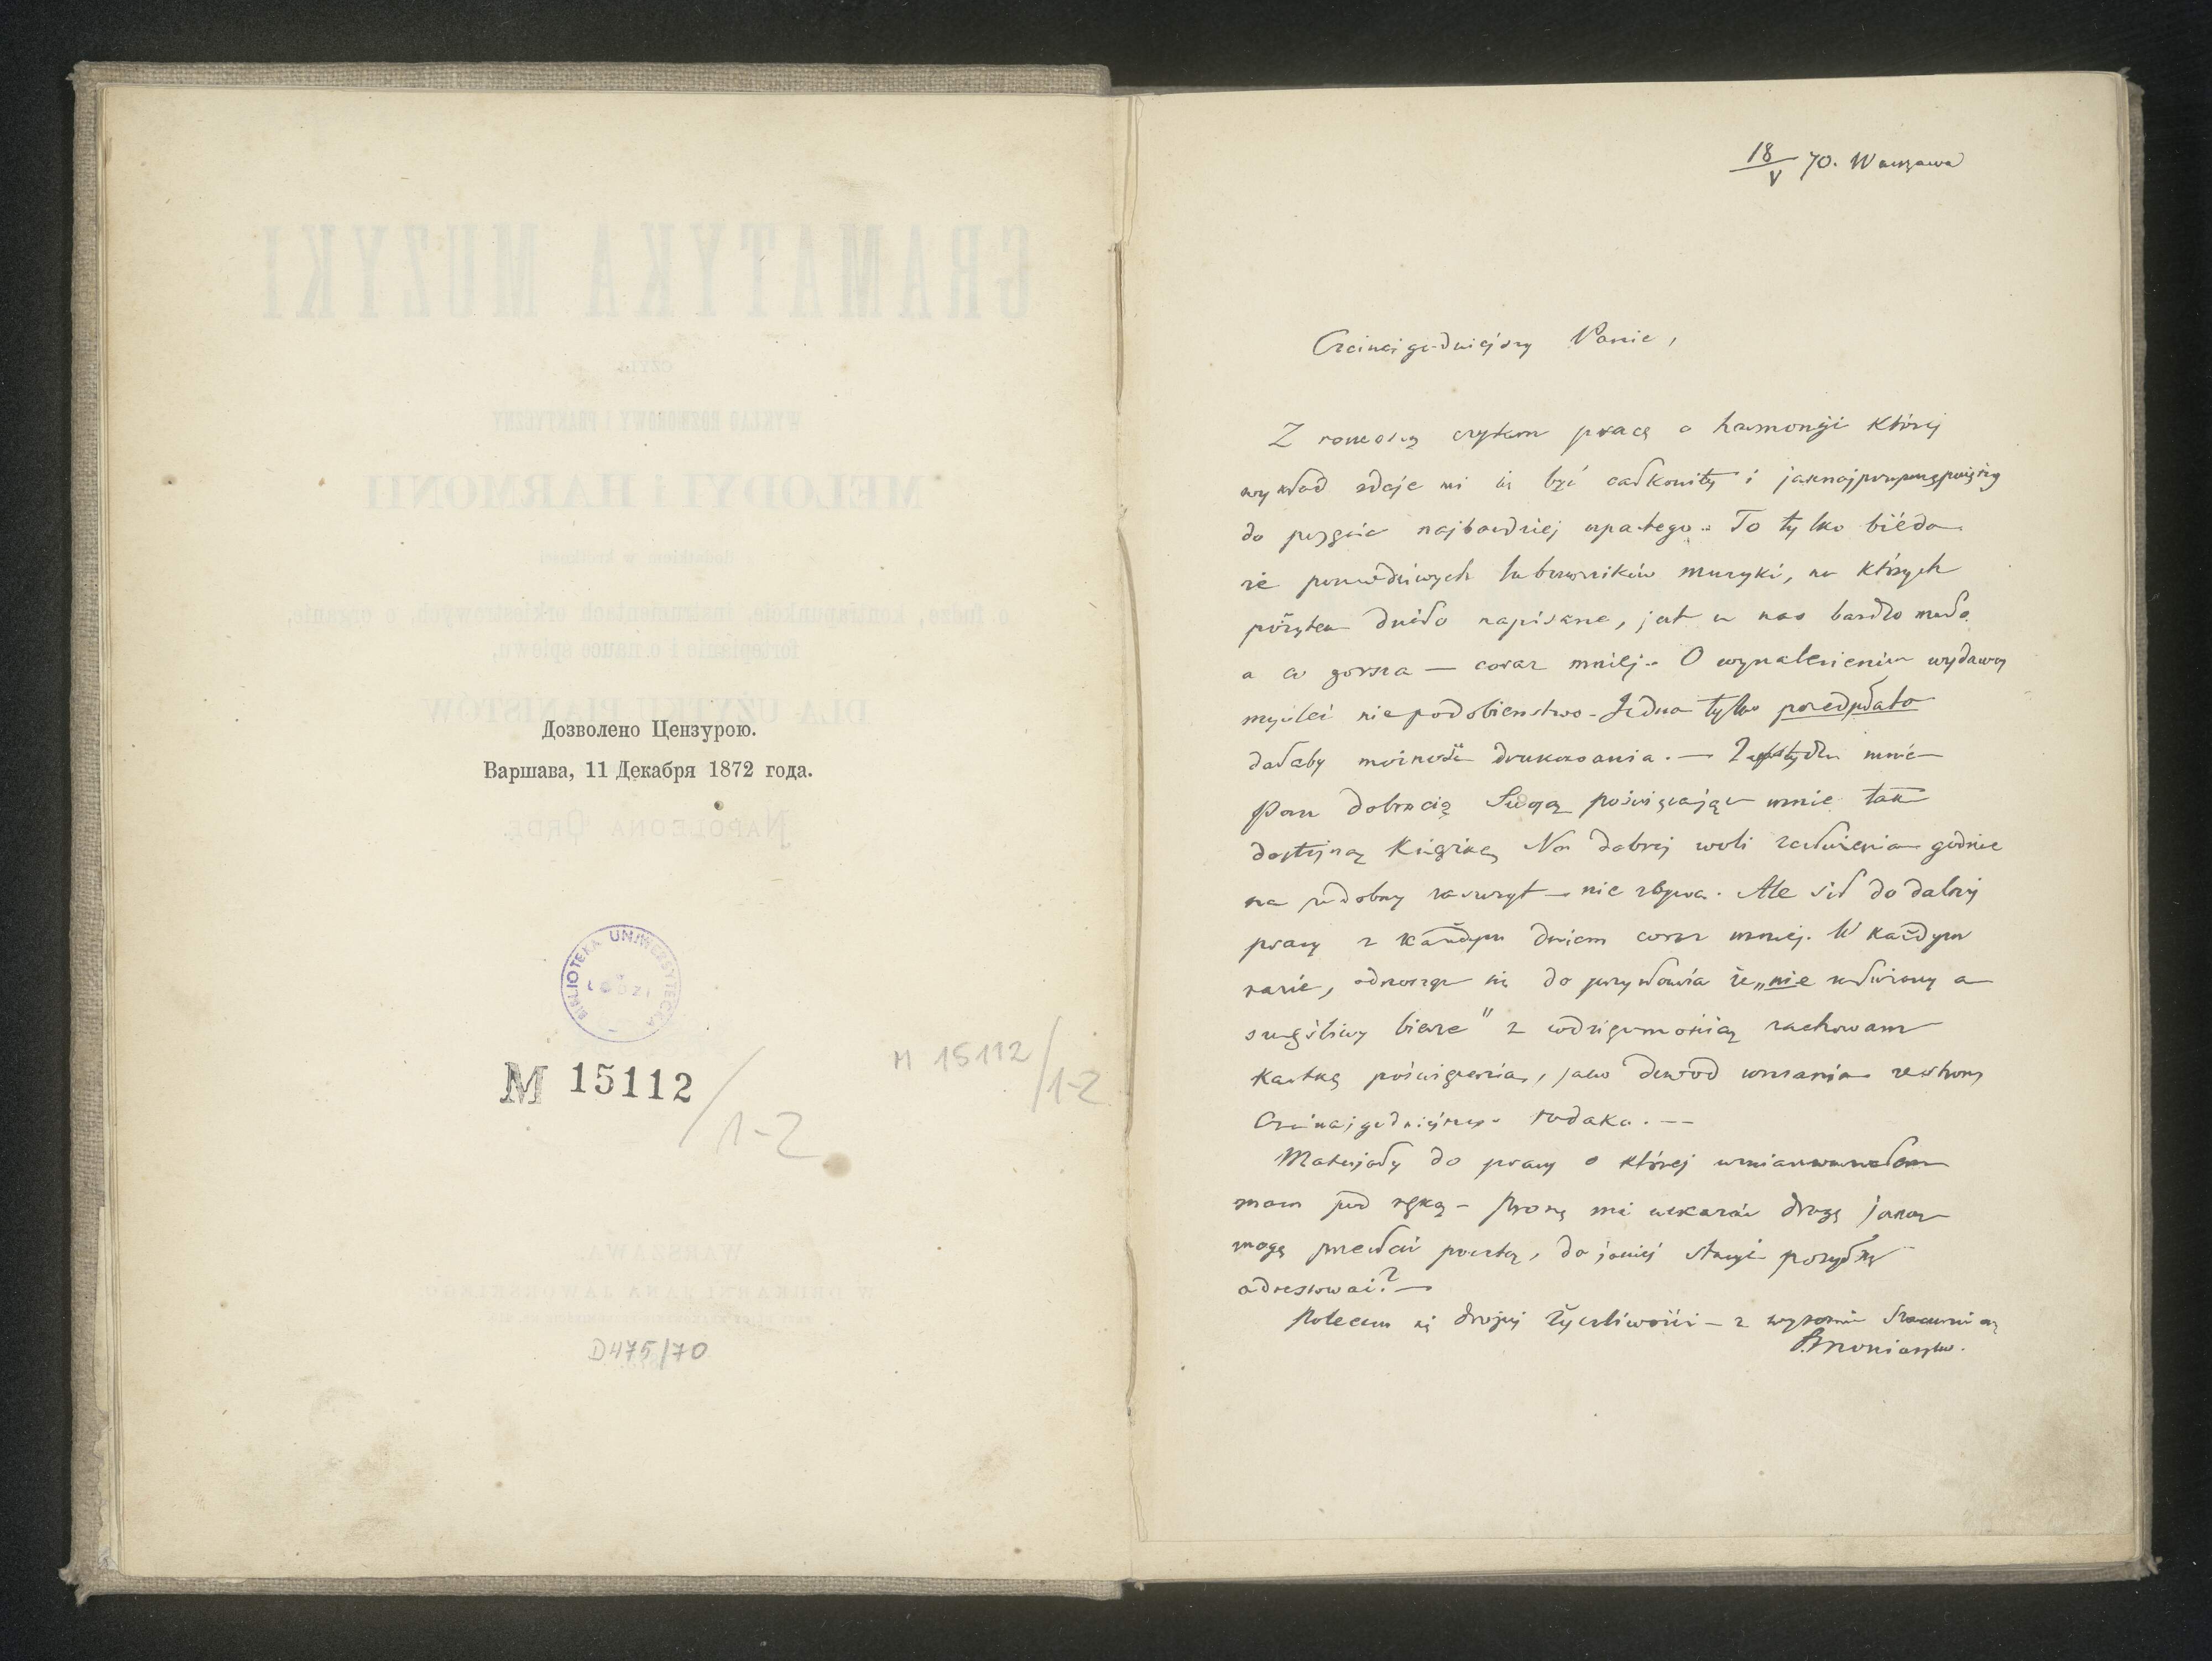 Дозволено Цензурою.
Варшава, 11 Декабря 1872 года.
BIBLIOTEKA UNIWERSYTECKA
ŁODZI
M 15112 / 1-2
M 15112 / 1-2
D475/70
18/V 70. Warszawa
Czcinajgodniejszy Panie,
Z rozkoszą czytam pracę o harmonji której
wykład zdaje mi się być całkowity i
do pojęcia najbardziej upartego. To tylko biéda
że prawdziwych lubowników muzyki, na których
pożytek dzieło napisane, jest u nas bardzo mało
a co gorsza — coraz mniej. O wynalezieniu wydawcy
myśleć niepodobieństwo. Jedna tylko przedpłata
dałaby możność drukowania. — mnie
Pan dobrocią Swoją poświęcając mnie tak
dostojną książkę. Na dobrej woli zasłużenia godnie
na podobny zaszczyt — nie zbywa. Ale sił do dalszej
pracy z każdym dniem coraz mniej. W każdym
razie, odnosząc się do przysłowia że „nie zasłużony a
szczęśliwy bierze" z wdzięcznością zachowam
kartkę poświęcenia, jako dowód uznania ze strony
Czcinajgodniejszego rodaka. —
Materjały do pracy o której
mam pod ręką — Proszę mi wskazać drogę jaką
mogę przesłać pocztą, do jakiéj stacyi posyłkę
adresować? —
Polecam się drogiej życzliwości — z wysokim szacunkiem
S. Moniuszko.